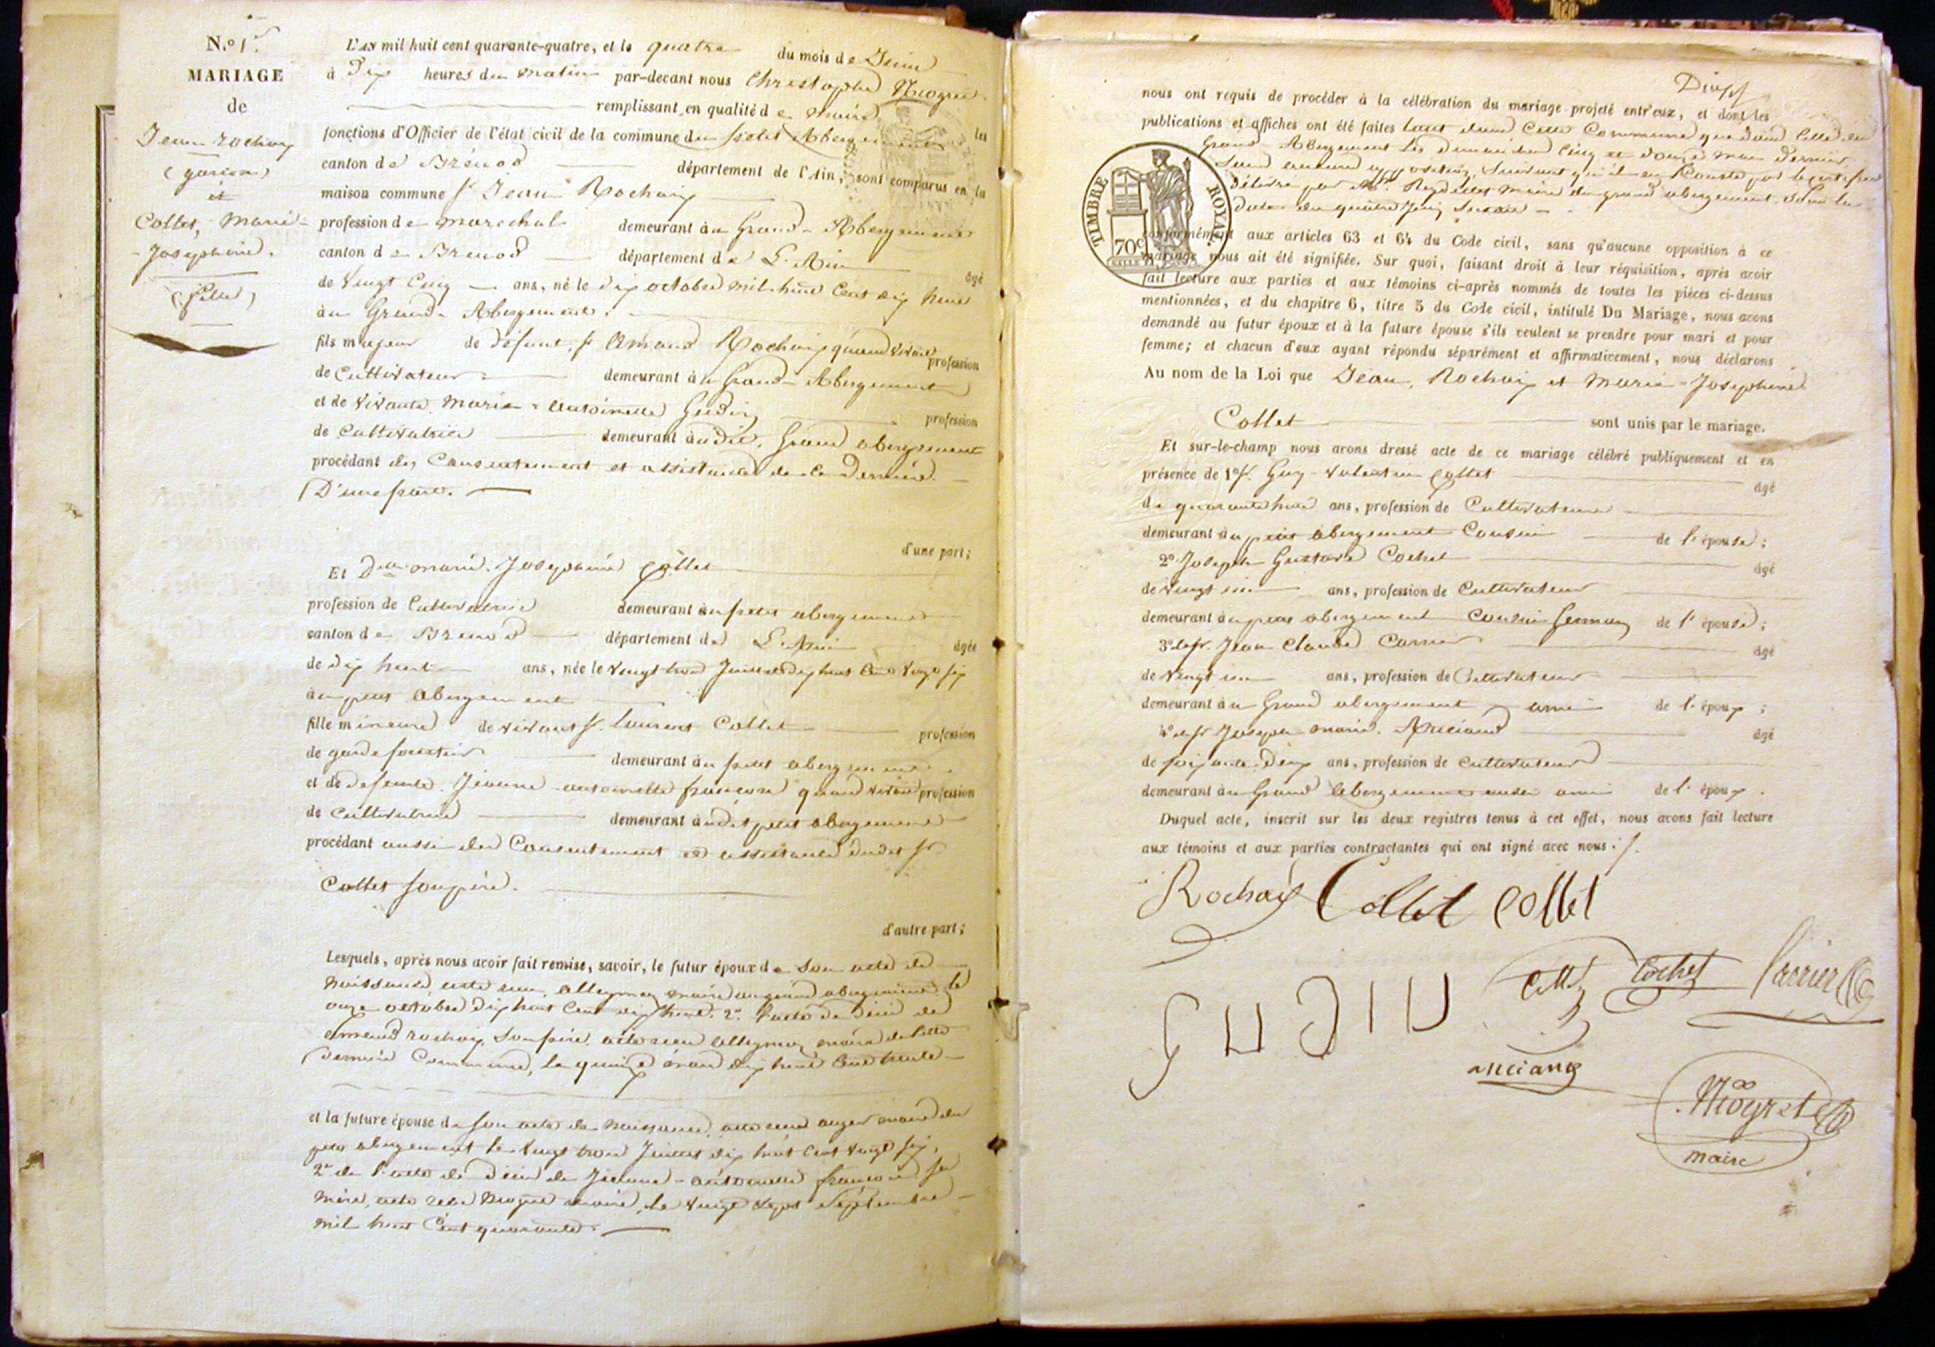 N.o 1er
MARIAGE
de
Jean Rochaix
(garçon)
et
Collet, Marie-
Josephine.
(fille)
L'AN mil huit cent quarante-quatre, et le quatre du mois de Juin
à dix heures du matin par-devant nous Christophe Niogret
remplissant en qualité de maire les
fonctions d'Officier de l'état civil de la commune du petit Abergement
canton de Brénod département de l'Ain, sont comparus en la
maison commune Sr Jean Rochaix
profession de marechal demeurant au Grand-Abergement
canton de Brenod département de L'Ain âgé
de vingt cinq ans, né le dix octobre mil huit cent dix huit
au Grand-Abergement.
fils majeur de défunt Sr Amand Rochaix quand vivait profession
de cultivateur demeurant au Grand-Abergement
et de vivante Marie-antoinette Gudin profession
de cultivatrice demeurant audit Grand abergement
procédant du Consentement et assistance de la dernière
D'une part.
d'une part;
Et Dlle marie Josephine Collet
profession de Cultivatrice demeurant au petit abergement
canton de Brenod département de L'Ain âgée
de dix huit ans, née le vingt trois Juillet dix huit cent vingt six
au petit abergement
fille mineure de vivant Sr laurent Collet profession
de garde forestier demeurant au petit abergement
et de defunte Jeanne antoinette françon quand vivait profession
de Cultivatrice demeurant audit petit abergement
procédant aussi du Consentement et assistance dudit Sr
Collet son père.
d'autre part;
Lesquels, après nous avoir fait remise, savoir, le futur époux de Son acte de
Naissance, acte reçu maire au grand abergement le
onze octobre dix huit Cent dix huit. 2o l'acte de décès de
Amand rochaix Son père, acte reçu maire de cette
dernière Commune, le quinze dix huit Cent trente
et la future épouse de Son acte de Naissance, acte reçu maire du
petit abergement le vingt trois Juillet dix huit Cent vingt six,
2o de l'acte de décès de Jeanne-antoinette françon Sa
mère, acte reçu Niogret maire, le vingt sept Septembre
mil huit Cent quarante.
nous ont requis de procéder à la célébration du mariage projeté entr'eux, et dont les
publications et affiches ont été faites tant dans Cette Commune que dans Celle du
Grand-Abergement les dimanches Cinq et douze mai dernier
Sans aucune opposition, Suivant qu'il en Conste par le certificat
délivré par Mr maire du grand abergement Sous la
date du quatre Juin
TIMBRE ROYAL.
70c
conformément aux articles 63 et 64 du Code civil, sans qu'aucune opposition à ce
mariage nous ait été signifiée. Sur quoi, faisant droit à leur réquisition, après avoir
fait lecture aux parties et aux témoins ci-après nommés de toutes les pièces ci-dessus
mentionnées, et du chapitre 6, titre 5 du Code civil, intitulé Du Mariage, nous avons
demandé au futur époux et à la future épouse s'ils veulent se prendre pour mari et pour
femme; et chacun d'eux ayant répondu séparément et affirmativement, nous déclarons
Au nom de la Loi que Jean Rochaix et Marie-Josephine
Collet sont unis par le mariage.
Et sur-le-champ nous avons dressé acte de ce mariage célébré publiquement et en
présence de 1o Sr. Guy-Valentin Collet âgé
de quarante huit ans, profession de Cultivateur
demeurant au petit abergement Cousin de l'épouse;
2o Joseph Gustave Cochet âgé
de vingt un ans, profession de Cultivateur
demeurant au petit abergement cousin germain de l'épouse;
3o le Sr. Jean Claude Carrier âgé
de vingt un ans, profession de Cultivateur
demeurant au Grand abergement ami de l'époux;
4o le Sr Joseph marie Anciand âgé
de soixante-dix ans, profession de cultivateur
demeurant au Grand abergement aussi ami de l'époux.
Duquel acte, inscrit sur les deux registres tenus à cet effet, nous avons fait lecture
aux témoins et aux parties contractantes qui ont signé avec nous.
Rochaix Collet Collet
GUDIN Collet Cochet Carrier
anciand
Niogret
maire